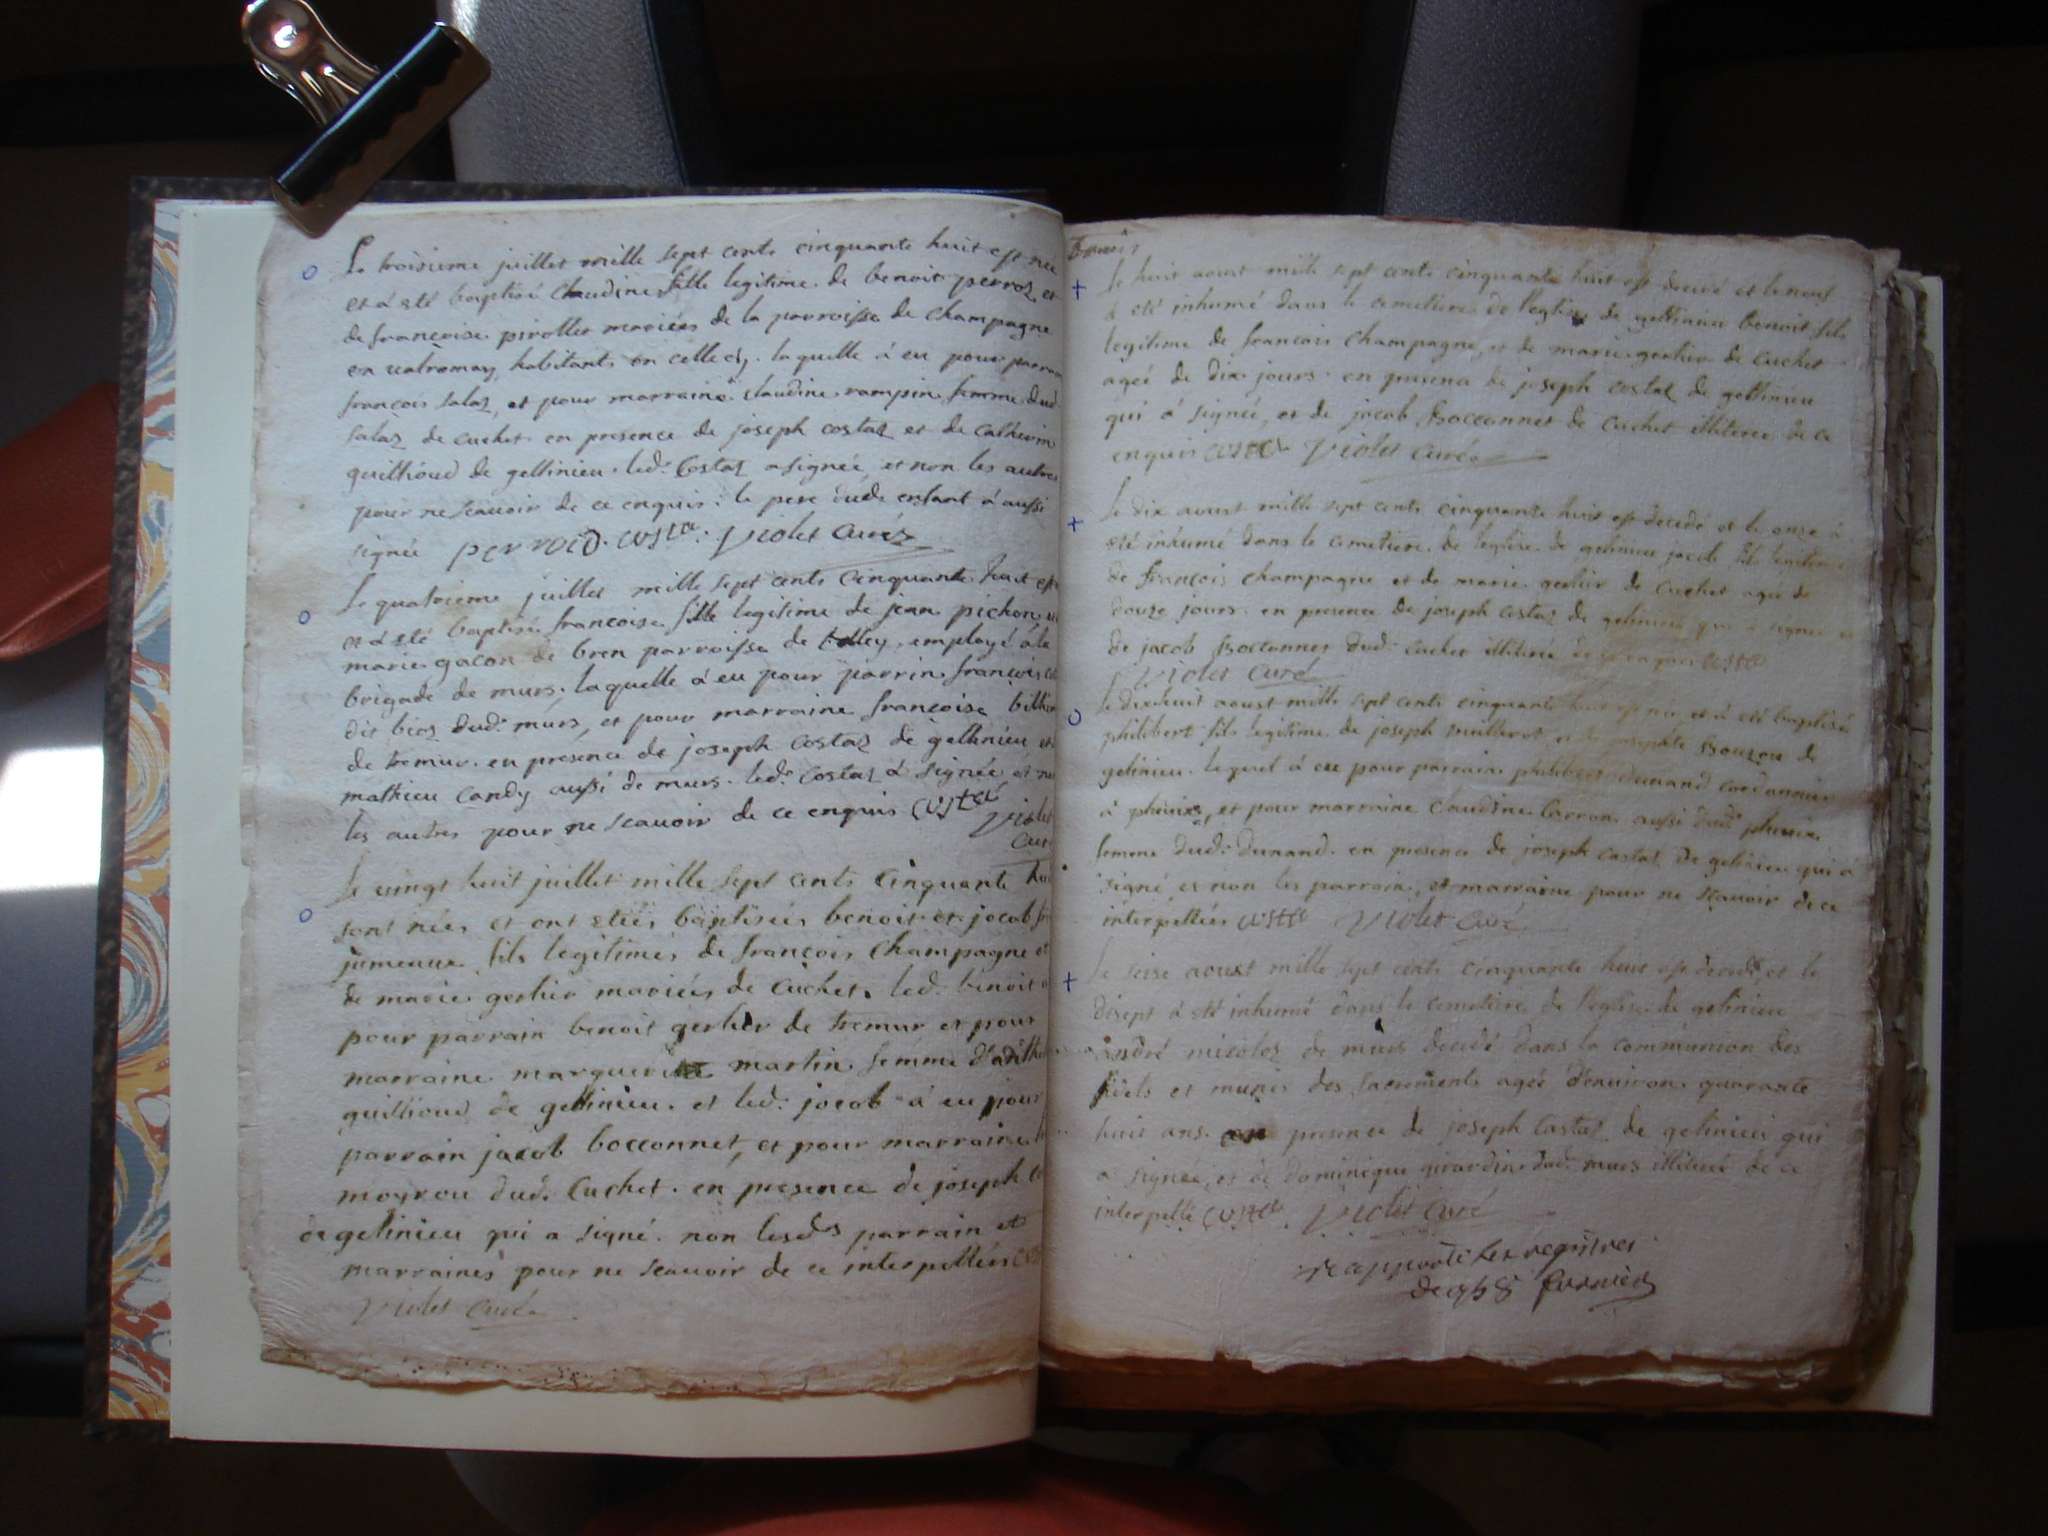 Le troisieme juillet mille sept cents cinquante huit est née
et á eté baptisé Claudine fille legitime de benoit perroz et
de françoise pirollet mariées de la parroisse de Champagne
en valromay habitants en celle cy. laquelle á eu pour parrain
françois salaz, et pour marraine Claudine rampin femme dud.
salaz de cuchet en presence de joseph costaz et de Catherin
guillioud de gellinieu. led. Costaz a signée, et non les autres
pour ne scavoir de ce enquis. le pere dud. enfant á aussi
signée perroud. costa. Violet Curéz
Le quatrieme juillet mille sept cents Cinquante huit est
et á eté baptisé françoise fille legitime de jean pichon, et
marie gacon de bren parroisse de, employé á la
brigade de murs. laquelle á eu pour parrin françois
dit bioz dud. murs, et pour marraine françoise
de tremur. en presence de joseph Costaz de gellinieu et
mathieu Candy aussi de murs. led. Costaz á signée et non
les autres pour ne scavoir de ce enquis costa Violet
Curé
Le vingt huit juillet mille sept cents Cinquante huit
sont nées et ont etées baptisées benoit et jacob
jumeaux fils legitimes de françois Champagne et
de marie gerlier mariées de Cuchet. led. benoit á
pour parrain benoit gerlier de tremur et pour
marraine marguerite martin femme d'
guillioud de gellinieu. et led. jacob á eu pour
parrain jacob bocconnet, et pour marraine
moyrou dud. Cuchet. en presence de joseph
de gelinieu qui a signé. non lesds parrain et
marraines pour ne scavoir de ce interpellées
Violet Curé
Le huit aoust mille sept cents cinquante huit est decedé et le neuf
á eté inhumé dans le cemetiere de l'eglise de gellinieu benoit fils
legitime de françois Champagne, et de marie gerlier de Cuchet
ageé de dix jours. en presence de joseph costaz de gellinieu
qui á signée, et de jacob Bocconnet de Cuchet illiteré de ce
enquis costa Violet Curé
Le dix aoust mille sept cents cinquante huit est decedé et le onze á
eté inhumé dans le cemetiere de l'eglise de gelinieu jacob fils legitime
de françois Champagne et de marie gerlier de Cuchet ageé de
douze jours. en presence de joseph costaz de gelinieu qui á signée et
de jacob Bocconnet dud. Cuchet illiteré de ce enquis costa
Violet Curé
Le dixhuit aoust mille sept cents cinquante huit est née, et á eté baptisé
philibert fils legitime de joseph milleret et de josephte Bouzon de
gelinieu. lequel á eu pour parrain philibert dunand cordonnier
á pheinix, et pour marraine Claudine Carron aussi dud. pheinix
femme dud. dunand. en presence de joseph costaz de gelinieu qui á
signé, et non les parrain, et marraine pour ne scavoir de ce
interpellées costa Violet Curé
Le seise aoust mille sept cents cinquante huit est decedé, et le
disept á eté inhumé dans le cemetiere de l'eglise de gelinieu
André nicoloz de murs decedé dans la communion des
fidels et munis des sacrements ageé d'environ quarante
huit ans. en presence de joseph Costaz de gelinieu qui
a signée, et de dominique girardin dud. murs illiteré de ce
interpellé costa. Violet Curé
apporté les registres
de 1758